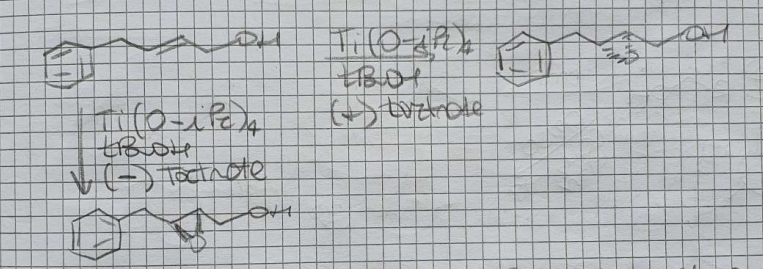 OH
Ti(O-iPr)4
tBuOH
(+) tartrate
OH
O
Ti(O-iPr)4
tBuOH
(-) Tartrate
OH
O